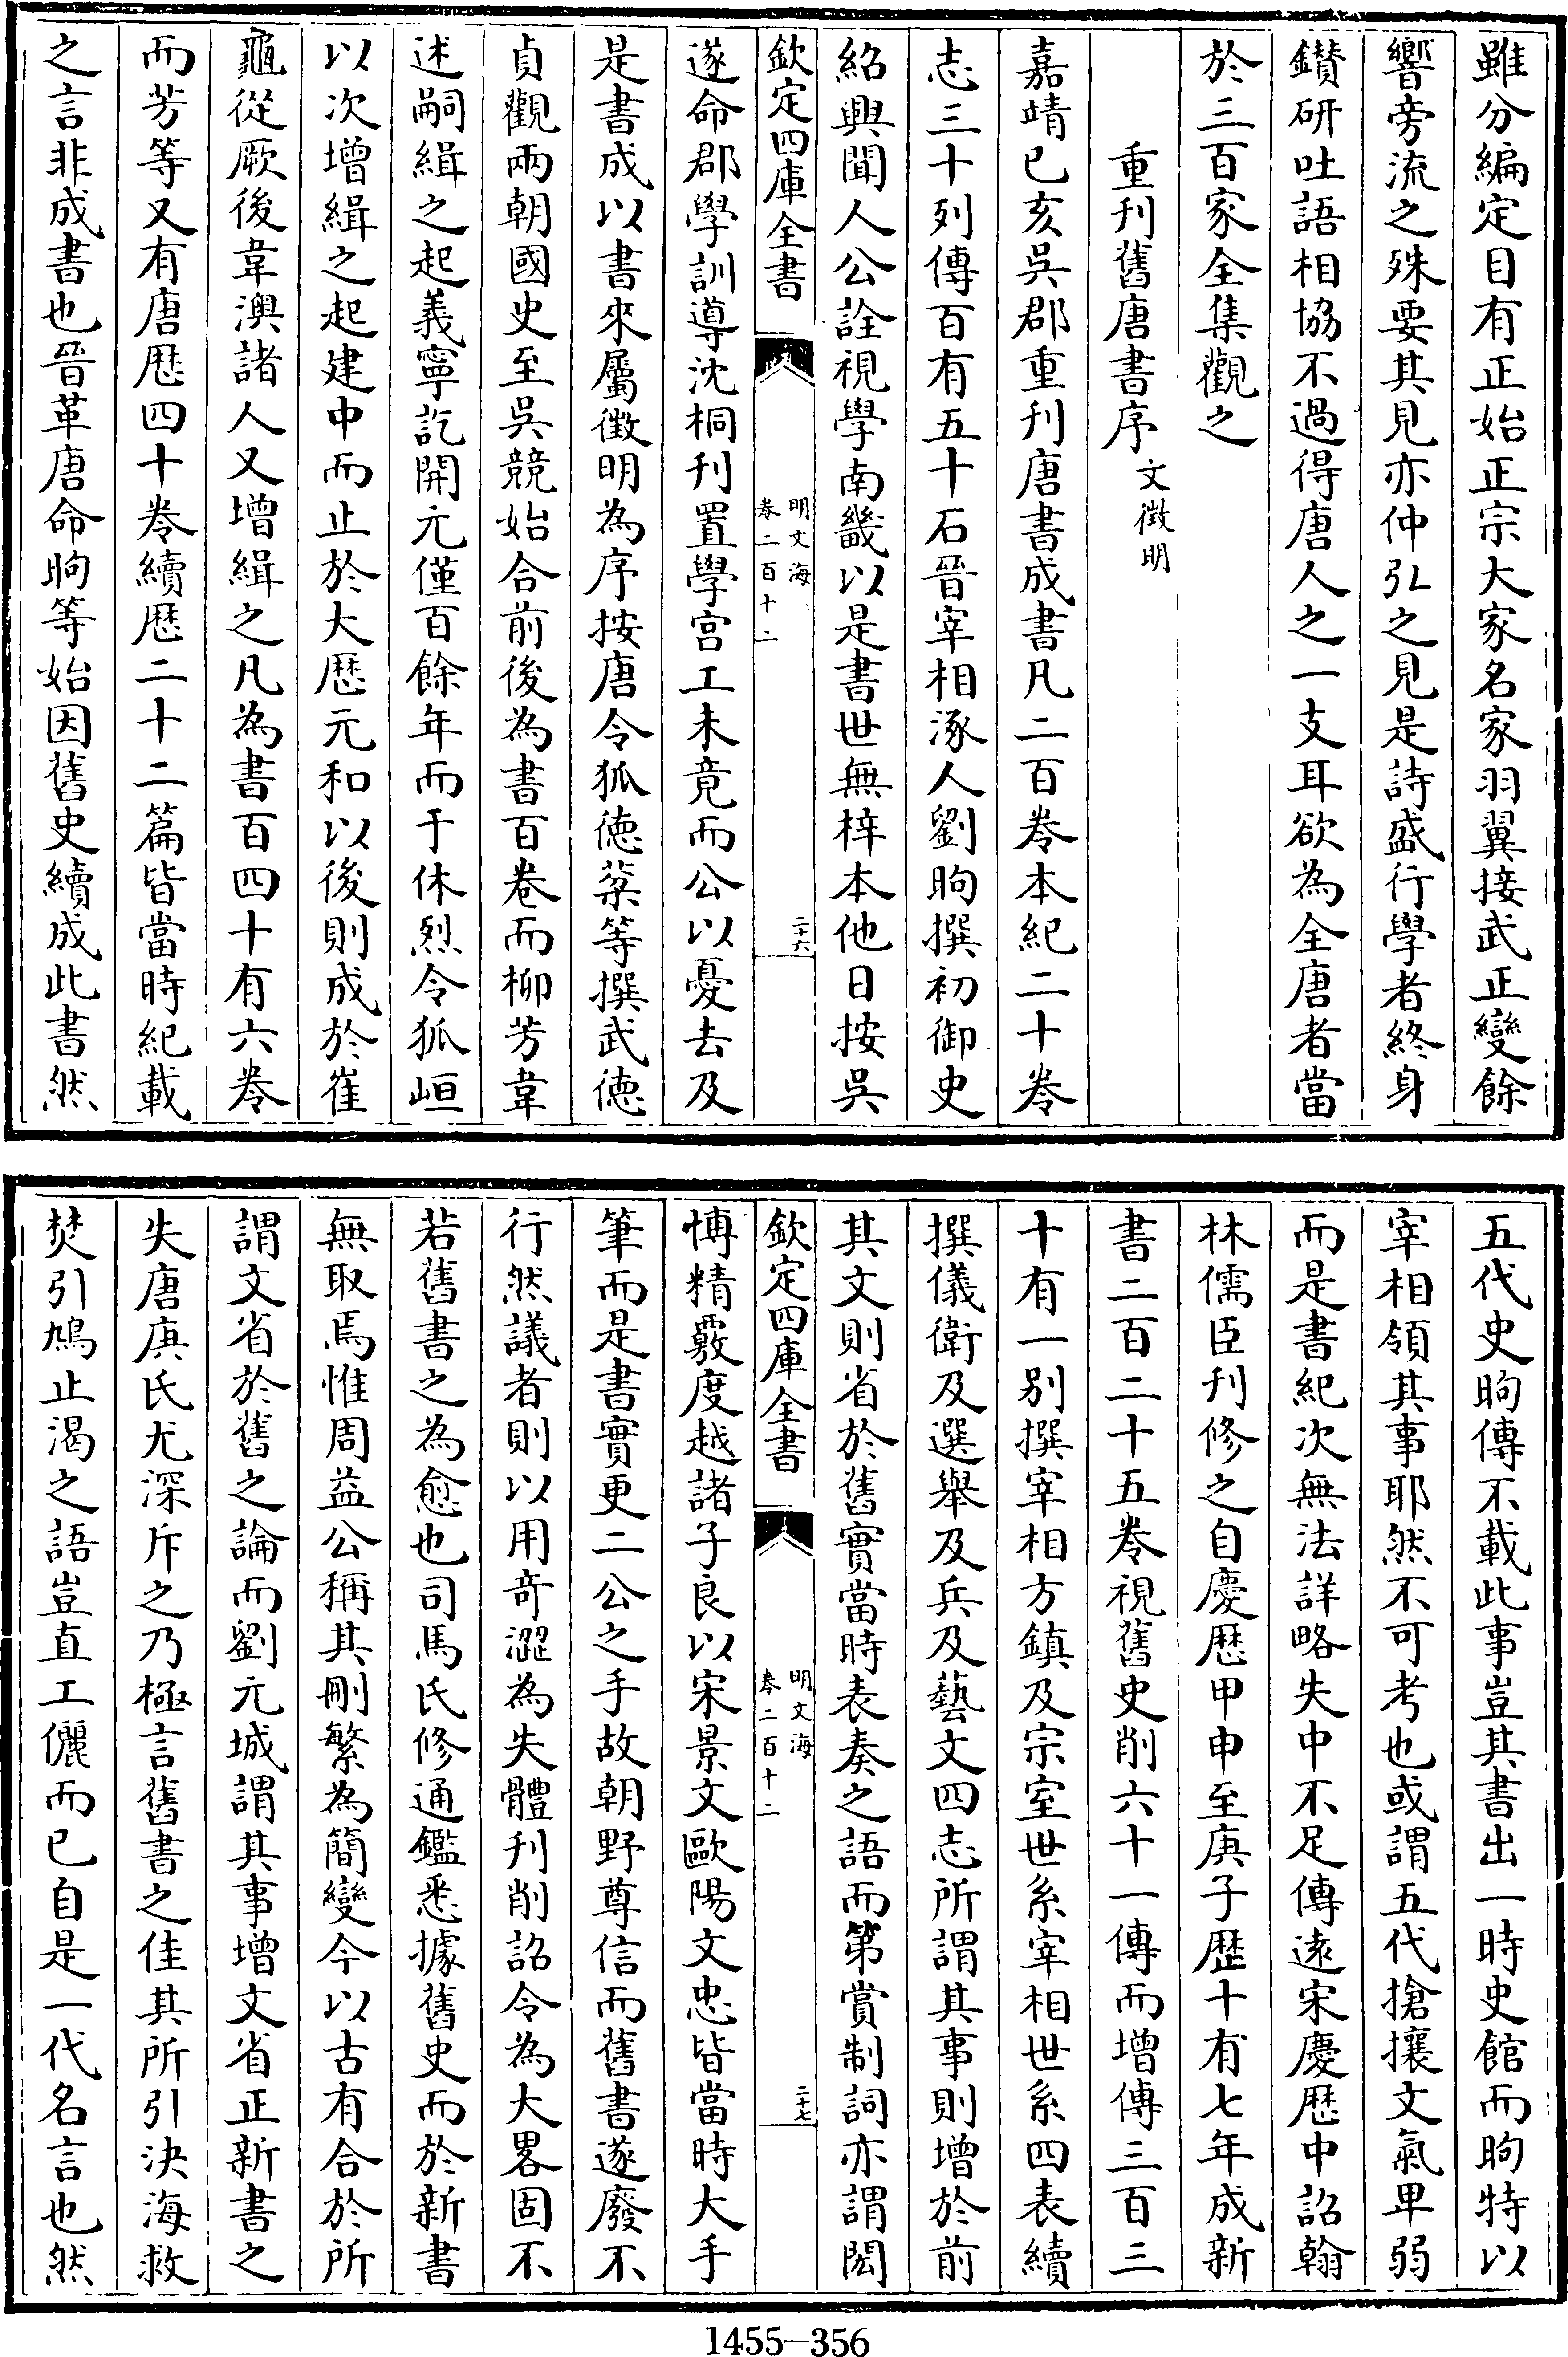 雖分編定目有正始正宗大家名家羽翼接武正變餘
響旁流之殊要其見亦仲弘之見是詩盛行學者終身
鑚研吐語相協不過得唐人之一支耳欲為全唐者當
於三百家全集觀之
重刊舊唐書序 文徴明
嘉靖已亥吳郡重刊唐書成書凡二百卷本紀二十卷
志三十列傳百有五十石晉宰相涿人劉昫撰初御史
紹興聞人公詮視學南畿以是書世無梓本他日按吳
欽定四庫全書 明文海 卷二百十二 二十六
遂命郡學訓導沈桐刊置學宫工未竟而公以憂去及
是書成以書來屬徴明為序按唐令狐徳棻等撰武徳
貞觀兩朝國史至吳競始合前後為書百卷而柳芳韋
述嗣緝之起義寧訖開元僅百餘年而于休烈令狐峘
以次增緝之起建中而止於大歴元和以後則成於崔
龜從厥後韋澳諸人又增緝之凡為書百四十有六卷
而芳等又有唐厯四十卷續厯二十二篇皆當時紀載
之言非成書也晉革唐命昫等始因舊史續成此書然
五代史昫傳不載此事豈其書出一時史館而昫特以
宰相領其事耶然不可考也或謂五代搶攘文氣卑弱
而是書紀次無法詳略失中不足傳逺宋慶厯中詔翰
林儒臣刊修之自慶厯甲申至庚子歴十有七年成新
書二百二十五卷視舊史削六十一傳而增傳三百三
十有一别撰宰相方鎮及宗室世系宰相世系四表續
撰儀衛及選舉及兵及藝文四志所謂其事則增於前
其文則省於舊實當時表奏之語而第賞制詞亦謂閎
欽定四庫全書 明文海 卷二百十二 二十七
博精覈度越諸子良以宋景文歐陽文忠皆當時大手
筆而是書實更二公之手故朝野尊信而舊書遂廢不
行然議者則以用竒澀為失體刋削詔令為大畧固不
若舊書之為愈也司馬氏修通鑑悉據舊史而於新書
無取焉惟周益公稱其刪繁為簡變今以古有合於所
謂文省於舊之論而劉元城謂其事增文省正新書之
失唐庚氏尤深斥之乃極言舊書之佳其所引決海救
焚引鴆止渴之語豈直工儷而已自是一代名言也然
1455-356